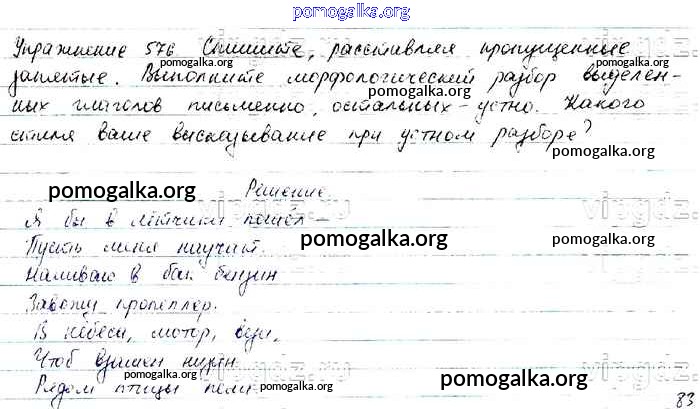 pomogalka.org
Упражнение 576. Спишите, расставляя пропущенные
запятые. Выполните морфологический разбор выделен-
ных глаголов письменно, остальных - устно. Какого
стиля ваше высказывание при устном разборе?
pomogalka.org
pomogalka.org
pomogalka.org
pomogalka.org
pomogalka.org
Решение
Я бы в лётчики пошёл -
Пусть меня научат.
pomogalka.org
Наливаю в бак бензин
Завожу пропеллер.
В небеса, мотор, вези,
Чтоб взамен низин
pomogalka.org
Рядом птицы пели.
pomogalka.org
pomogalka.org
83